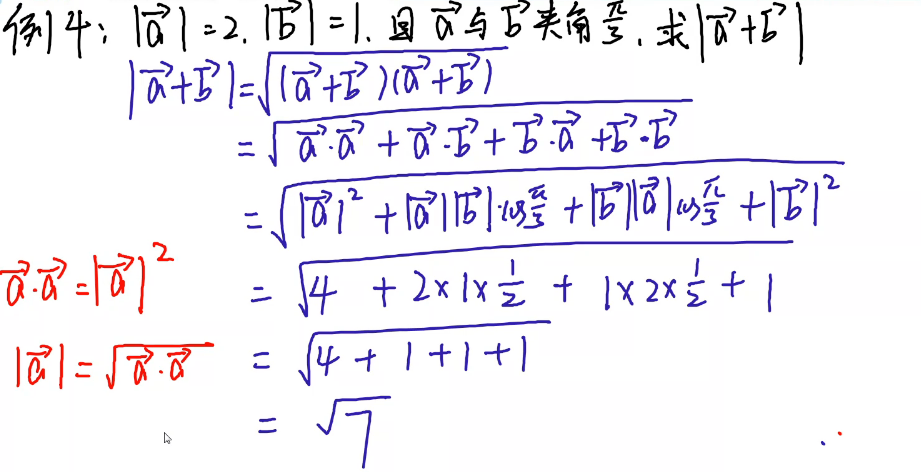 例4: |a⃗|=2, |b⃗|=1, 且 a⃗与b⃗夹角π/3, 求|a⃗+b⃗|
|a⃗+b⃗|=√((a⃗+b⃗)(a⃗+b⃗))
=√(a⃗·a⃗+a⃗·b⃗+b⃗·a⃗+b⃗·b⃗)
=√(|a⃗|²+|a⃗||b⃗|·cosπ/3+|b⃗||a⃗|cosπ/3+|b⃗|²)
a⃗·a⃗=|a⃗|²
=√(4+2×1×1/2+1×2×1/2+1)
|a⃗|=√(a⃗·a⃗)
=√(4+1+1+1)
=√7